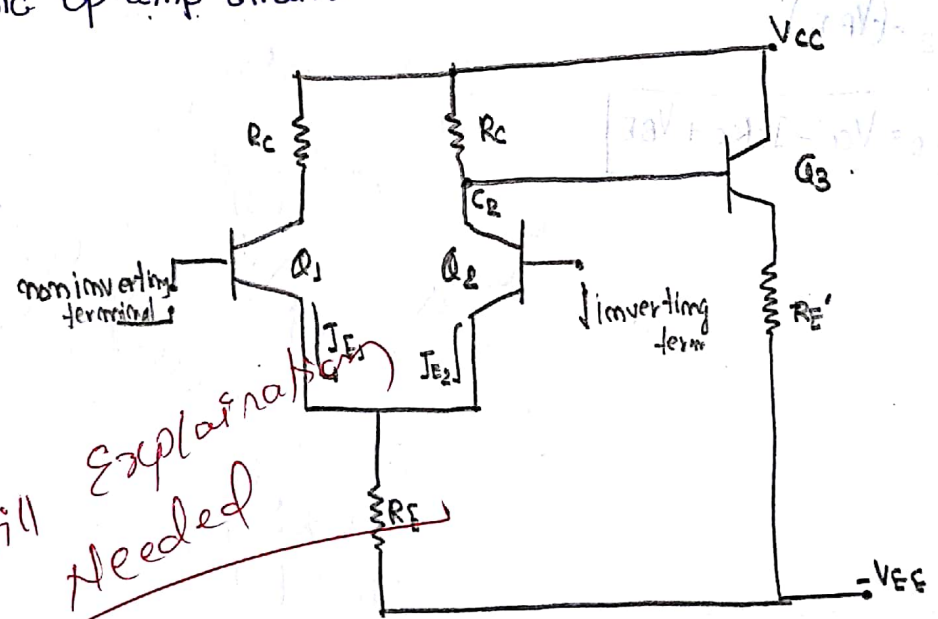 Vcc
Rc
Rc
Q3
C2
Q1
Q2
noninverting
terminal
inverting
term
IE1
IE2
RE'
Explaination
Needed
RE
-VEE